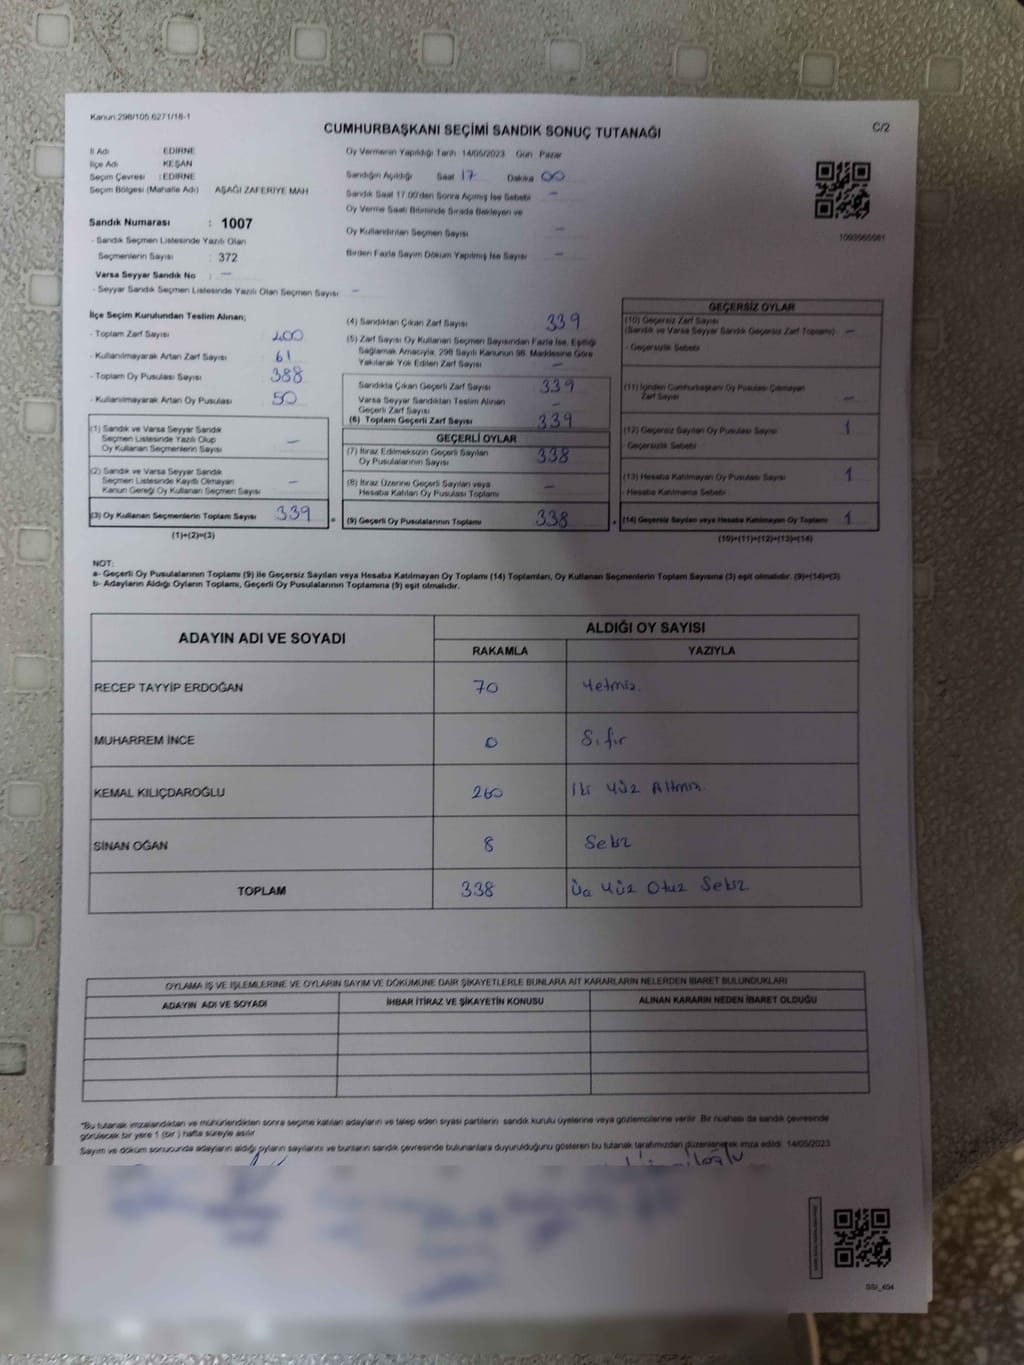 Kanun:298/105.6271/16-1
CUMHURBAŞKANI SEÇİMİ SANDIK SONUÇ TUTANAĞI
C/2
İl Adı EDİRNE
İlçe Adı KEŞAN
Seçim Çevresi : EDİRNE
Seçim Bölgesi (Mahalle Adı) AŞAĞI ZAFERİYE MAH
Sandık Numarası : 1007
- Sandık Seçmen Listesinde Yazılı Olan
Seçmenlerin Sayısı : 372
Varsa Seyyar Sandık No : -
- Seyyar Sandık Seçmen Listesinde Yazılı Olan Seçmen Sayısı -
Oy Vermenin Yapıldığı Tarih 14/05/2023 Gün Pazar
Sandığın Açıldığı Saat 17 Dakika 00
Sandık Saat 17.00'den Sonra Açmış İse Sebebi -
Oy Verme Saati Bitiminde Sırada Bekleyen ve
Oy Kullandırılan Seçmen Sayısı -
Birden Fazla Sayım Döküm Yapılmış İse Sayısı -
1093565561
İlçe Seçim Kurulundan Teslim Alınan;
- Toplam Zarf Sayısı 400
- Kullanılmayarak Artan Zarf Sayısı : 61
- Toplam Oy Pusulası Sayısı : 388
- Kullanılmayarak Artan Oy Pusulası : 50
(1) Sandık ve Varsa Seyyar Sandık
Seçmen Listesinde Yazılı Olup
Oy Kullanan Seçmenlerin Sayısı -
(2) Sandık ve Varsa Seyyar Sandık
Seçmen Listesinde Kayıtlı Olmayan
Kanun Gereği Oy Kullanan Seçmen Sayısı -
(3) Oy Kullanan Seçmenlerin Toplam Sayısı 339 =
(1)+(2)=(3)
(4) Sandıktan Çıkan Zarf Sayısı 339
(5) Zarf Sayısı Oy Kullanan Seçmen Sayısından Fazla İse, Eşitliği
Sağlamak Amacıyla, 298 Sayılı Kanunun 98. Maddesine Göre
Yakılarak Yok Edilen Zarf Sayısı -
Sandıkta Çıkan Geçerli Zarf Sayısı 339
Varsa Seyyar Sandıktan Teslim Alınan
Geçerli Zarf Sayısı -
(6) Toplam Geçerli Zarf Sayısı 339
GEÇERLİ OYLAR
(7) İtiraz Edilmeksizin Geçerli Sayılan
Oy Pusulalarının Sayısı 338
(8) İtiraz Üzerine Geçerli Sayılan veya
Hesaba Katılan Oy Pusulası Toplamı -
(9) Geçerli Oy Pusulalarının Toplamı 338 +
GEÇERSİZ OYLAR
(10) Geçersiz Zarf Sayısı
(Sandık ve Varsa Seyyar Sandık Geçersiz Zarf Toplamı) -
- Geçersizlik Sebebi :
(11) İçinden Cumhurbaşkanı Oy Pusulası Çıkmayan
Zarf Sayısı -
(12) Geçersiz Sayılan Oy Pusulası Sayısı 1
- Geçersizlik Sebebi
(13) Hesaba Katılmayan Oy Pusulası Sayısı 1
- Hesaba Katılmama Sebebi
(14) Geçersiz Sayılan veya Hesaba Katılmayan Oy Toplamı 1
(10)+(11)+(12)+(13)=(14)
NOT:
a- Geçerli Oy Pusulalarının Toplamı (9) ile Geçersiz Sayılan veya Hesaba Katılmayan Oy Toplamı (14) Toplamları, Oy Kullanan Seçmenlerin Toplam Sayısına (3) eşit olmalıdır. (9)+(14)=(3)
b- Adayların Aldığı Oyların Toplamı, Geçerli Oy Pusulalarının Toplamına (9) eşit olmalıdır.
ADAYIN ADI VE SOYADI
ALDIĞI OY SAYISI
RAKAMLA YAZIYLA
RECEP TAYYİP ERDOĞAN 70 Yetmiş
MUHARREM İNCE 0 Sıfır
KEMAL KILIÇDAROĞLU 260 İki Yüz Altmış
SİNAN OĞAN 8 Sekiz
TOPLAM 338 Üç Yüz Otuz Sekiz
OYLAMA İŞ VE İŞLEMLERİNE VE OYLARIN SAYIM VE DÖKÜMÜNE DAİR ŞİKAYETLERLE BUNLARA AİT KARARLARIN NELERDEN İBARET BULUNDUKLARI
ADAYIN ADI VE SOYADI İHBAR İTİRAZ VE ŞİKAYETİN KONUSU ALINAN KARARIN NEDEN İBARET OLDUĞU
*Bu tutanak imzalandıktan ve mühürlendikten sonra seçime katılan adayların ve talep eden siyasi partilerin sandık kurulu üyelerine veya gözlemcilerine verilir. Bir nüshası da sandık çevresinde
görülecek bir yere 1 (bir) hafta süreyle asılır.
Sayım ve döküm sonucunda adayların aldığı oyların sayılarını ve bunların sandık çevresinde bulunanlara duyurulduğunu gösteren bu tutanak tarafımızdan düzenlenerek imza edildi. 14/05/2023
SSI_404